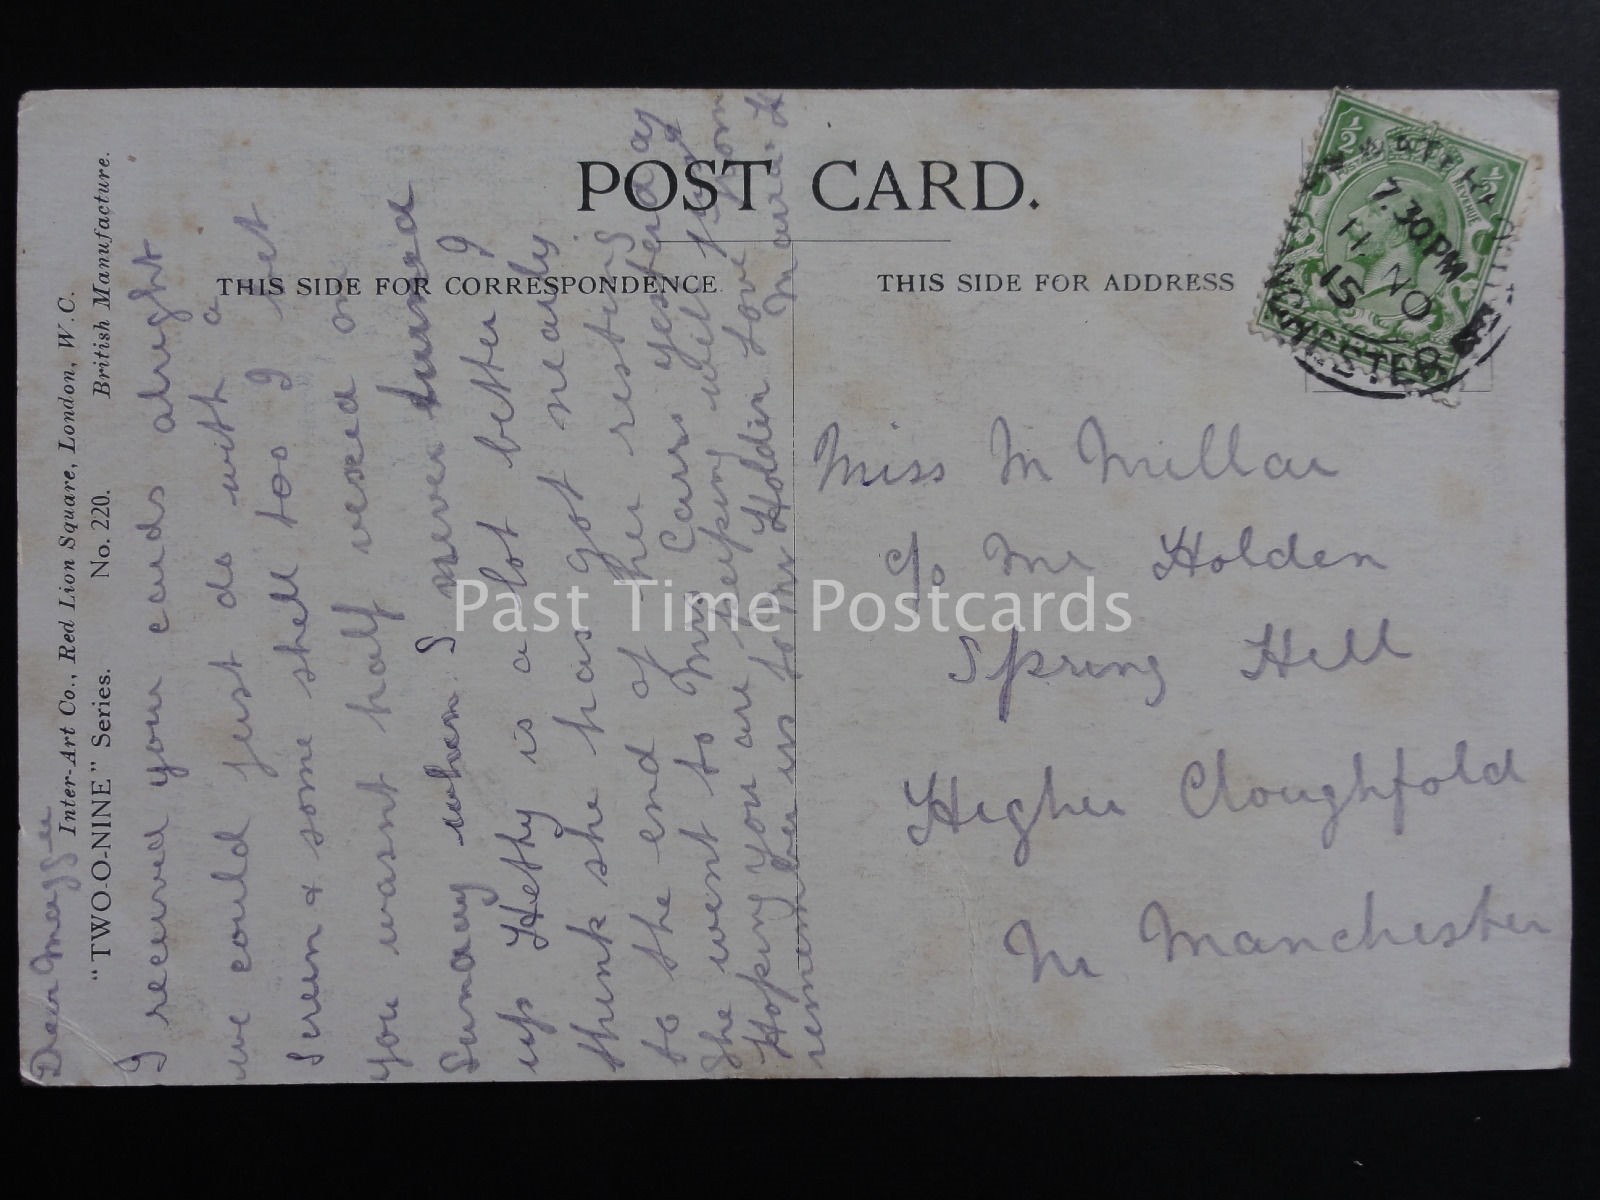 POST CARD.
THIS SIDE FOR CORRESPONDENCE
THIS SIDE FOR ADDRESS
Inter-Art Co., Red Lion Square, London, W.C.
"TWO-O-NINE" Series. No. 220. British Manufacture.
Dear Maggie
I received your cards alright
we could just do with a
Serem & some shell too I bet
you wasnt half vexed on
Sunday when I never turned
up Hetty is a lot better I
think she has got nearly
to the end of her resting
She went to Mrs Cars yesterday
Hoping you are keeping well
remember us to Mr Holden Love from
Miss M Millar
c/o Mr Holden
Spring Hill
Higher Cloughfold
Nr Manchester
7.30PM
11 NO
15
Past Time Postcards